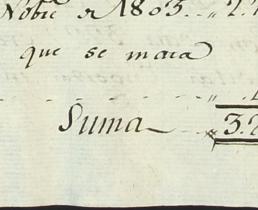 Nobre a 1805 .. ,, 2.
que se mata
Suma ,, 3.